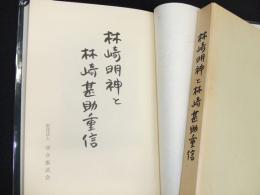 林崎明神と
林崎甚助重信
林崎明神と林崎甚助重信